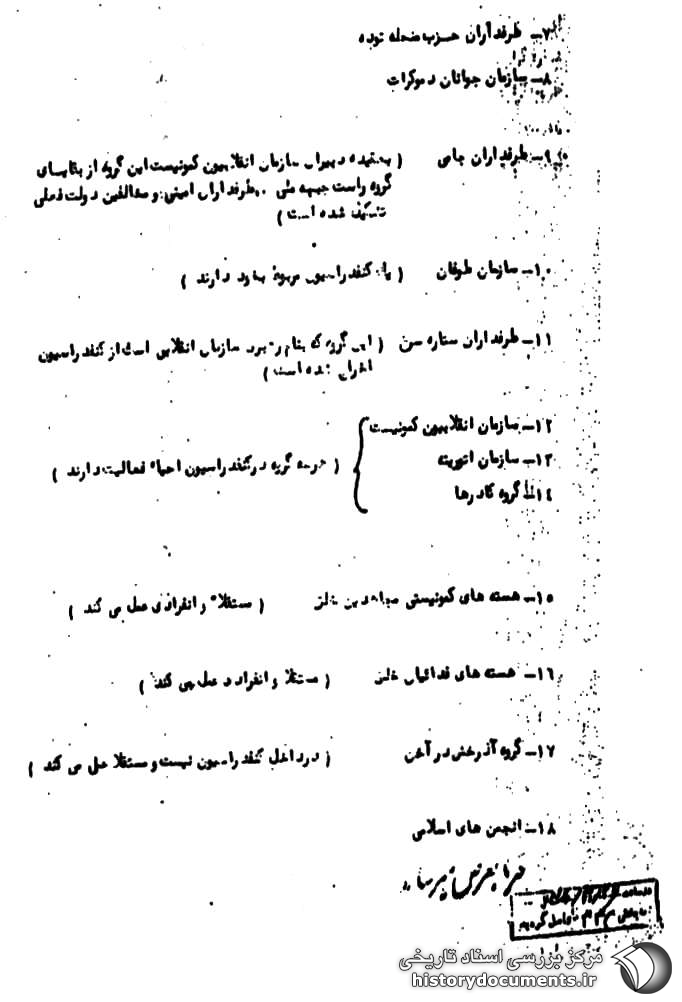 ۷ـ طرفداران حزب منحله توده
۸ـ سازمان جوانان دموکرات
۹ـ طرفداران جامی ( بعقیده دبیران سازمان انقلابیون کمونیست این گروه از بقایای
گروه راست جبهه ملی، طرفداران امینی و مخالفین دولت فعلی
تشکیل شده است )
۱۰ـ سازمان طوفان ( یک کنفدراسیون مربوط بخود دارند )
۱۱ـ طرفداران ستاره سرخ ( این گروه که بنام رهبرد سازمان انقلابی است از کنفدراسیون
اخراج شده است )
۱۲ـ سازمان انقلابیون کمونیست
۱۳ـ سازمان اتوریته
( هرسه گروه در کنفدراسیون احیاء فعالیت دارند )
۱٤ـ گروه کادرها
۱۵ـ هسته های کمونیستی مجاهدین خلق ( مستقلا و انفرادی عمل می کند )
۱۶ـ هسته های فدائیان خلق ( مستقلا و انفراد عمل می کند )
۱۷ـ گروه آذرخش در آخن ( در داخل کنفدراسیون نیست و مستقلا عمل می کند )
۱۸ـ انجمن های اسلامی
مرکز بررسی اسناد تاریخی
historydocuments.ir